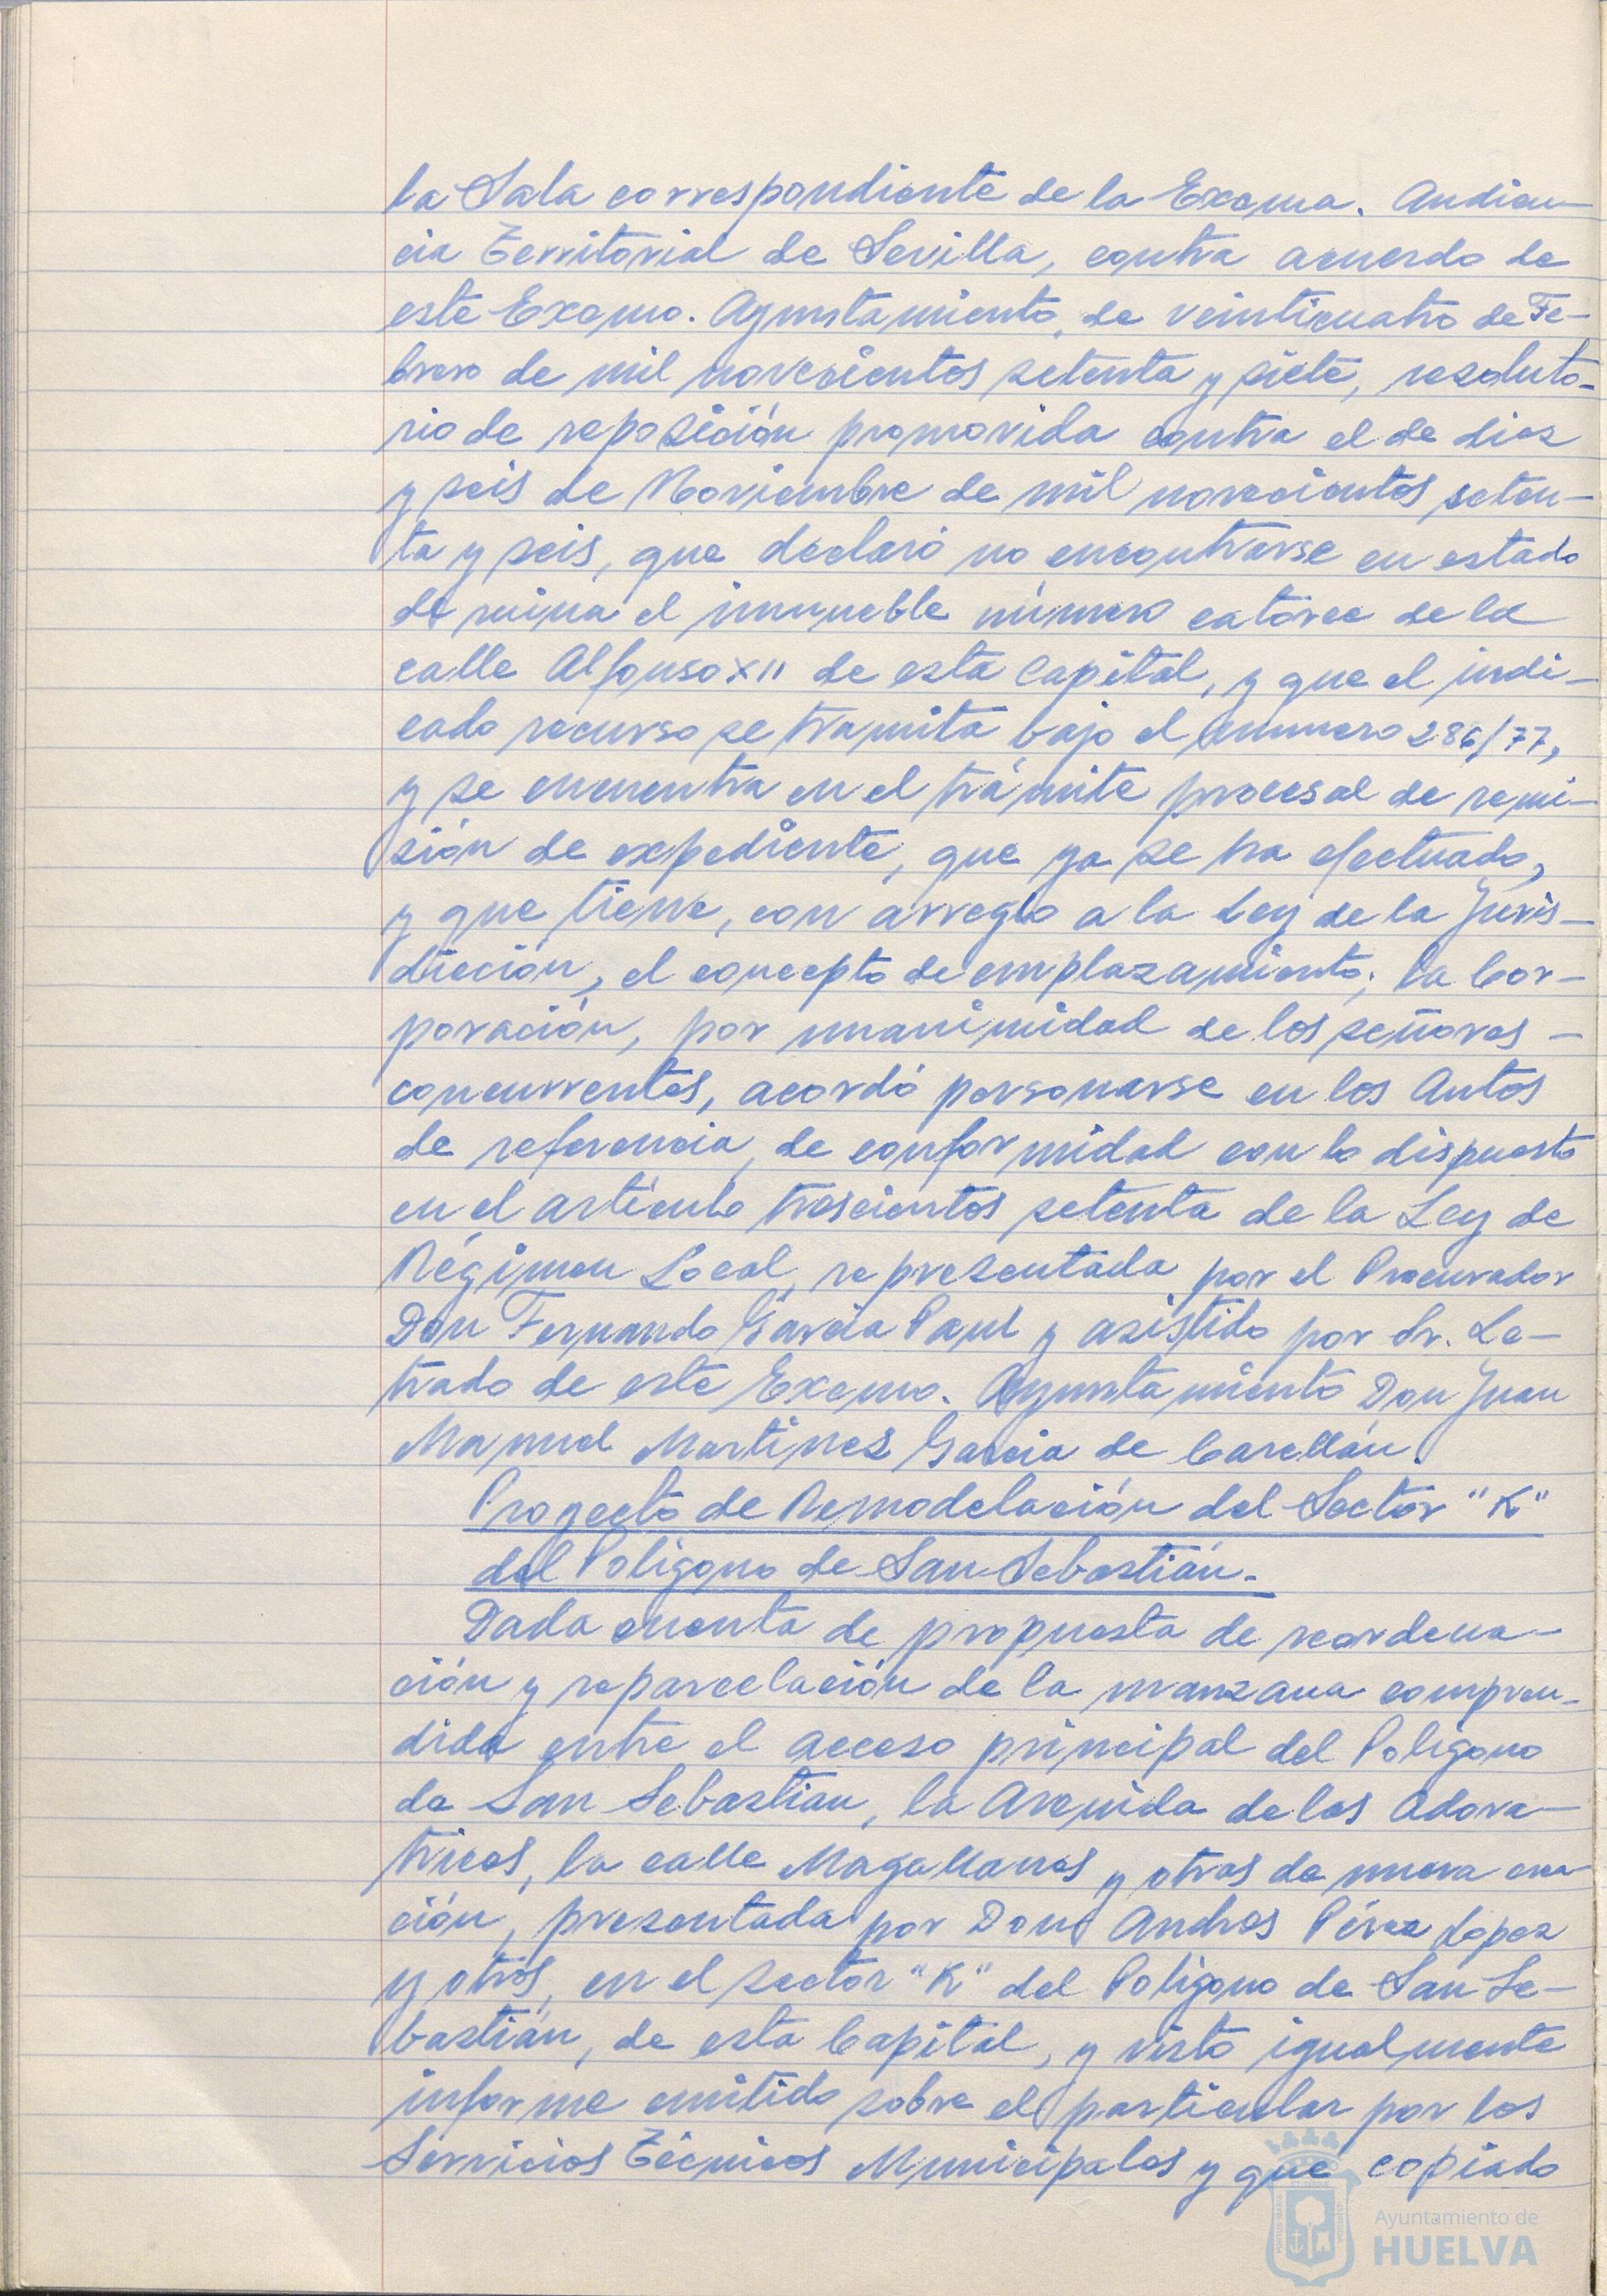 la Sala correspondiente de la Excma. Audien-
cia Territorial de Sevilla, contra acuerdo de
este Excmo. Ayuntamiento, de veinticuatro de Fe-
brero de mil novecientos setenta y siete, resoluto-
rio de reposición promovida contra el de diez
y seis de Noviembre de mil novecientos seten-
ta y seis, que declaró no encontrarse en estado
de ruina el inmueble número catorce de la
calle Alfonso XII de esta Capital, y que el indi-
cado recurso se tramita bajo el número 286/77,
y se encuentra en el trámite procesal de remi-
sión de expediente, que ya se ha efectuado,
y que tiene, con arreglo a la Ley de la Juris-
dicción, el concepto de emplazamiento; la Cor-
poración, por unanimidad de los señores -
concurrentes, acordó personarse en los Autos
de referencia, de conformidad con lo dispuesto
en el artículo trescientos setenta de la Ley de
Régimen Local, representada por el Procurador
Don Fernando García Paul y asistido por Sr. Le-
trado de este Excmo. Ayuntamiento Don Juan
Manuel Martinez Garcia de Carellán.
Proyecto de Remodelación del Sector "K"
del Poligono de San Sebastián.-
Dada cuenta de propuesta de reordena-
ción y reparcelación de la manzana compren-
dida entre el acceso principal del Poligono
de San Sebastian, la Avenida de las Adora-
trices, la calle Magallanes y otras de nueva crea-
ción, presentada por Don Andres Pérez Lopez
y otros, en el sector "K" del Poligono de San Se-
bastián, de esta Capital, y visto igualmente
informe emitido sobre el particular por los
Servicios Técnicos Municipales y que copiado
Ayuntamiento de
HUELVA